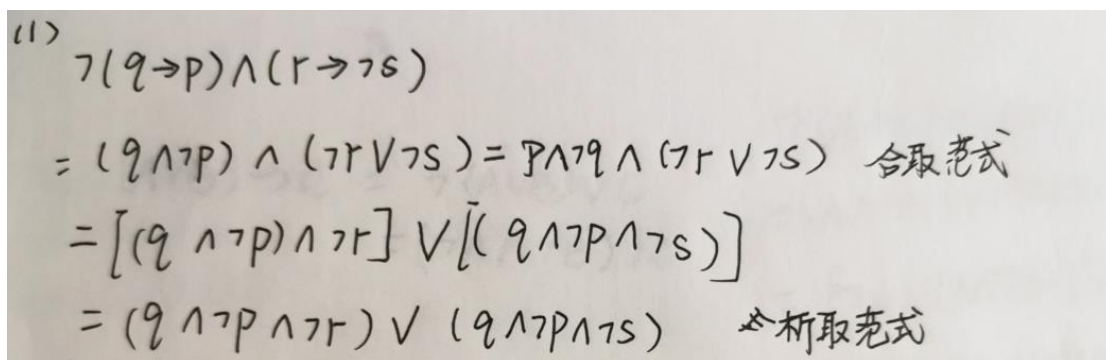 (1)
¬(q→p)∧(r→¬s)
= (q∧¬p) ∧ (¬r∨¬s) = p∧¬q ∧ (¬r ∨ ¬s) 合取范式
= [(q ∧¬p)∧¬r] ∨ [(q∧¬p∧¬s)]
= (q∧¬p∧¬r) ∨ (q∧¬p∧¬s) 析取范式